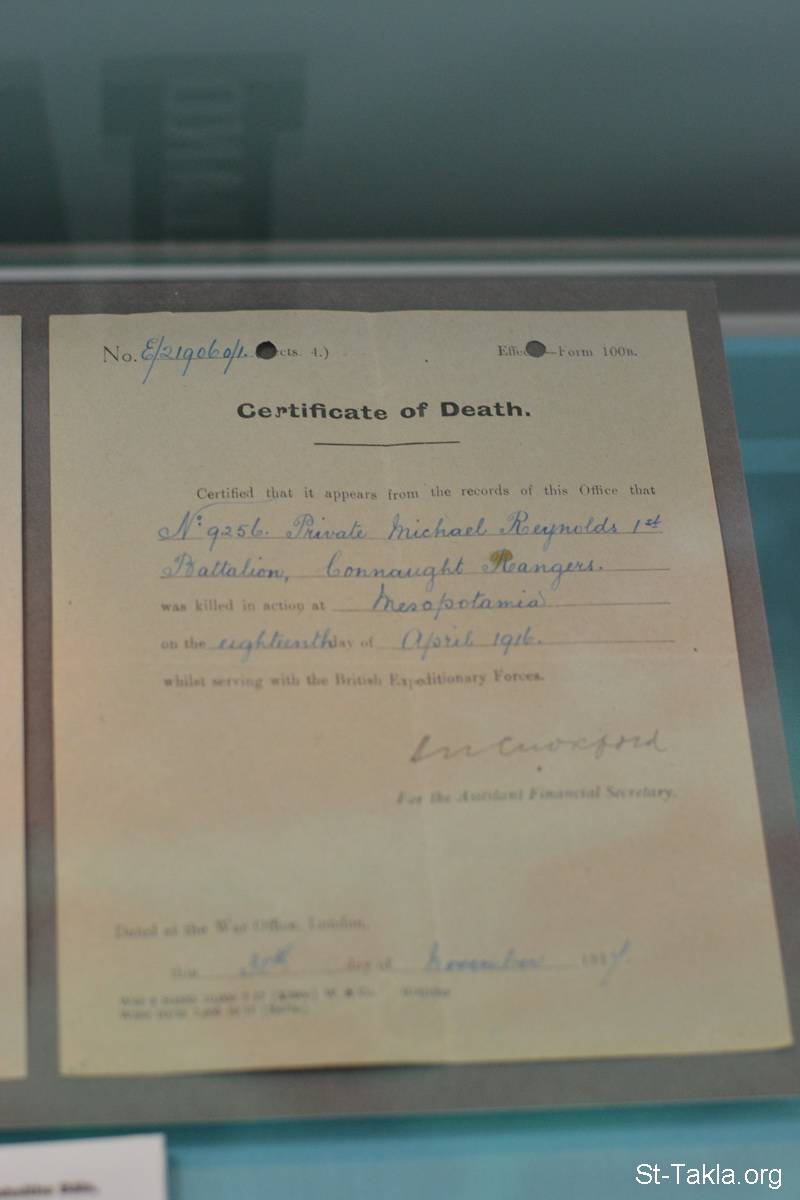 No. E/219060/1. cts. 4.)
Effec—Form 100B.
Certificate of Death.
Certified that it appears from the records of this Office that
No: 9256. Private Michael Reynolds 1st
Battalion, Connaught Rangers.
was killed in action at Mesopotamia
on the eighteenth day of April 1916.
whilst serving with the British Expeditionary Forces.
For the Assistant Financial Secretary.
Dated at the War Office, London,
this day of November 191
St-Takla.org